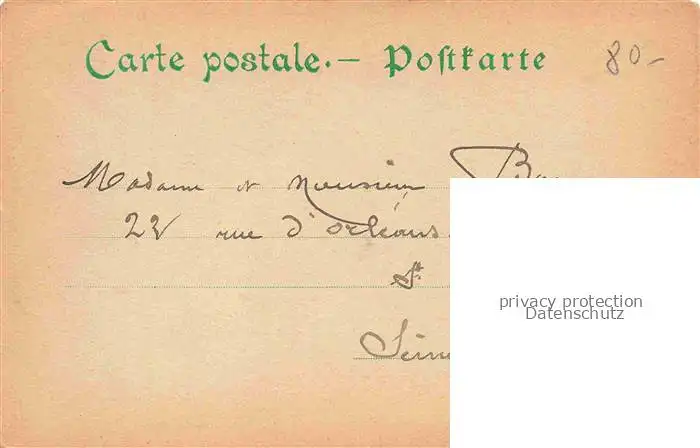 Carte postale.— Postkarte 80-
Madame et Monsieur
22 rue d'Orléans
St
privacy protection
Datenschutz